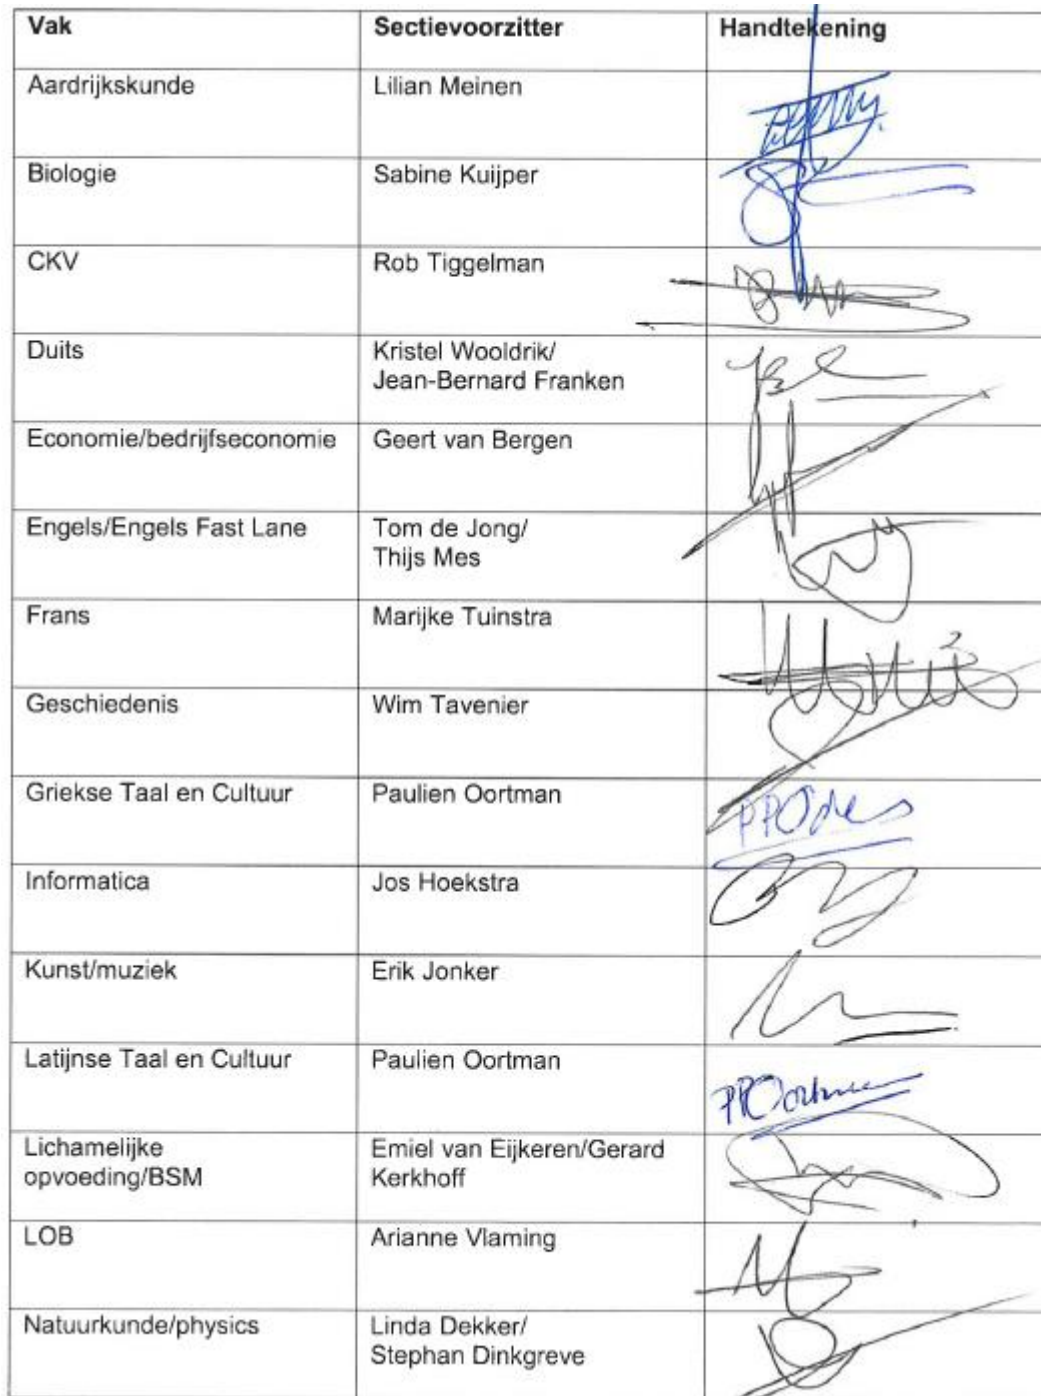 Vak Sectievoorzitter Handtekening
Aardrijkskunde Lilian Meinen
Biologie Sabine Kuijper
CKV Rob Tiggelman
Duits Kristel Wooldrik/
Jean-Bernard Franken
Economie/bedrijfseconomie Geert van Bergen
Engels/Engels Fast Lane Tom de Jong/
Thijs Mes
Frans Marijke Tuinstra
Geschiedenis Wim Tavenier
Griekse Taal en Cultuur Paulien Oortman
Informatica Jos Hoekstra
Kunst/muziek Erik Jonker
Latijnse Taal en Cultuur Paulien Oortman PPOortman
Lichamelijke Emiel van Eijkeren/Gerard
opvoeding/BSM Kerkhoff
LOB Arianne Vlaming
Natuurkunde/physics Linda Dekker/
Stephan Dinkgreve